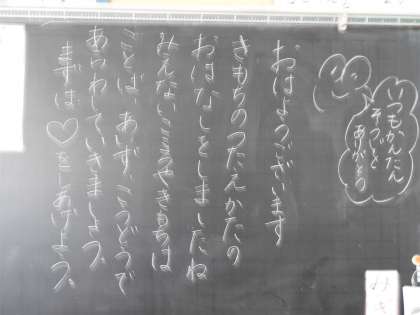 いつもかんたん
そうじを
ありがとう
おはようございます
きもちのつたえかたの
おはなしをしましたね
みえないこころやきもちは
ことば、あいず、こうどうで
あらわしていきましょう。
まずは♡をしあげよう。